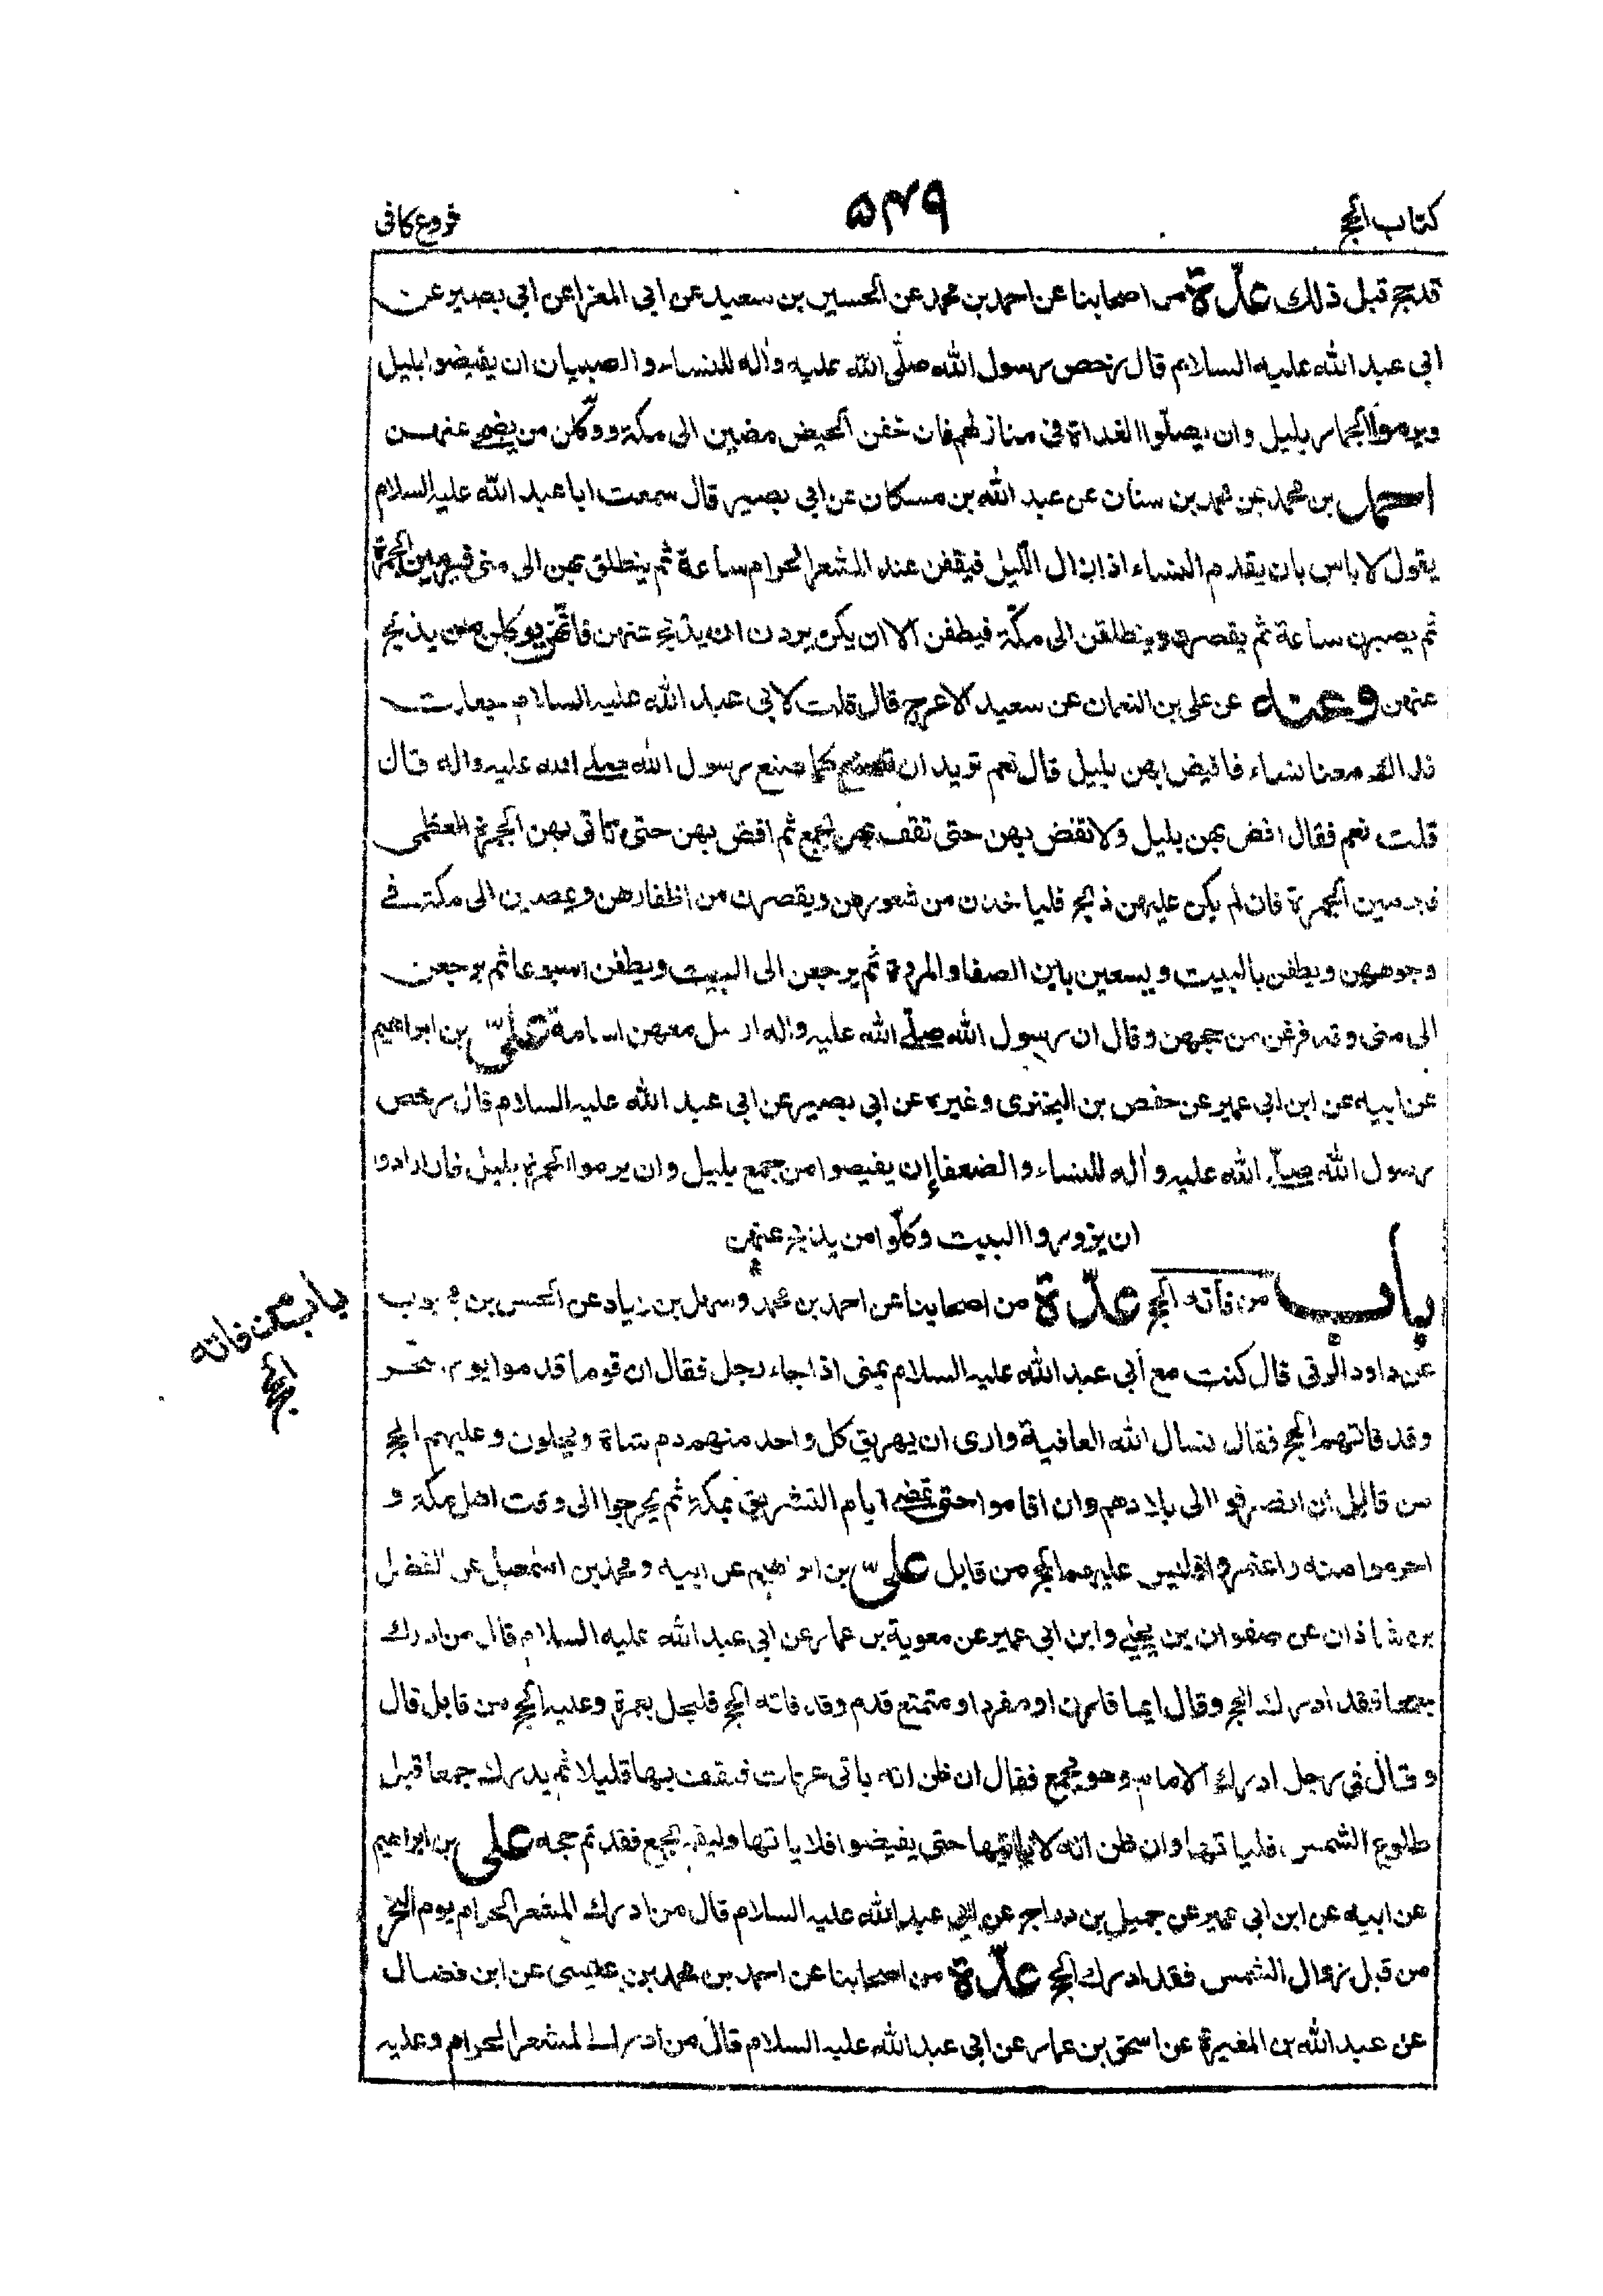 كتاب الحج
۵۴۹
فروع كافى
قد حج قبل ذلك عدّة من اصحابنا عن احمد بن محمد عن الحسين بن سعيد عن ابى المغرا عن ابى بصير عن
ابى عبد الله عليه السلام قال رخص رسول الله صلّى الله عليه واله للنساء والصبيان ان يفيضوا بليل
ويرموا الجمار بليل وان يصلّوا الغداة فى منازلهم فان خفن الحيض مضين الى مكة ووكّلن من يضحى عنهن
احمد بن محمد عن محمد بن سنان عن عبد الله بن مسكان عن ابى بصير قال سمعت ابا عبد الله عليه السلام
يقول لا باس بان يقدم النساء اذا زال الليل فيقفن عند المشعر الحرام ساعة ثم ينطلق بهن الى منى فيرمين الجمرة
ثم يصبرن ساعة ثم يقصرن وينطلقن الى مكّة فيطفن الا ان يكن يردن ان يذبح عنهن فانّهن يوكلن من يذبح
عنهن وعنه عن على بن النعمان عن سعيد الاعرج قال قلت لابى عبد الله عليه السلام جعلت
فداك معنا نساء فافيض بهن بليل قال نعم تريد ان تصنع كما صنع رسول الله صلى الله عليه واله قال
قلت نعم فقال افض بهن بليل ولا تفض بهن حتى تقف بهن بجمع ثم افض بهن حتى تاتى بهن الجمرة العظمى
فيرمين الجمرة فان لم يكن عليهن ذبح فلياخذن من شعورهن ويقصرن من اظفارهن وعضين الى مكة فى
وجوههن ويطفن بالبيت ويسعين باين الصفا والمروة ثم يرجعن الى البيت ويطفن اسبوعا ثم يرجعن
الى منى وقد فرغن من حجهن وقال ان رسول الله صلّى الله عليه واله ارسل معهن اسامة علىّ بن ابراهيم
عن ابيه عن ابن ابى عمير عن حفص بن البخترى وغيره عن ابى بصير عن ابى عبد الله عليه السلام قال رخص
رسول الله صلّى الله عليه واله للنساء والضعفا ان يفيضوا من جمع بليل وان يرموا الجمرة بليل فان ارادوا
ان يزوروا البيت وكلّوا من يذبح عنهن
باب من فاته الحج عدّة من اصحابنا عن احمد بن محمد وسهل بن زياد عن الحسن بن محبوب
باب من فاته
الحج
عن داود الرقى قال كنت مع أبى عبد الله عليه السلام بمنى اذا جاء رجل فقال ان قوما قدموا يوم نحر
وقد فاتهم الحج فقال نسال الله العافية وارى ان يهريق كل واحد منهم دم شاة ويحلون وعليهم الحج
من قابل ان انصرفوا الى بلادهم وان اقاموا حتى تمضى ايام التشريق بمكة ثم يخرجوا الى وقت اهل مكة و
احرموا منه واعتمروا فليس عليهم الحج من قابل علىّ بن ابراهيم عن ابيه ومحمد بن اسمعيل عن الفضل
بن شاذان عن صفوان بن يحيى وابن ابى عمير عن معوية بن عمار عن ابى عبد الله عليه السلام قال من ادرك
جمعا فقد ادرك الحج وقال ايما قارن او مفرد او متمتع قدم وقد فاته الحج فليحل بعمرة وعليه الحج من قابل قال
وقال فى رجل ادرك الامام وهو بجمع فقال ان ظن انه ياتى عرفات فيقف بها قليلا ثم يدرك جمعا قبل
طلوع الشمس فلياتها وان ظن انه لا ياتيها حتى يفيضوا فلا ياتها وليقم بجمع فقد تم حجه على بن ابراهيم
عن ابيه عن ابن ابى عمير عن جميل بن دراج عن ابى عبد الله عليه السلام قال من ادرك المشعر الحرام يوم النحر
من قبل زوال الشمس فقد ادرك الحج عدّة من اصحابنا عن احمد بن محمد بن عيسى عن ابن فضال
عن عبد الله بن المغيرة عن اسحق بن عمار عن ابى عبد الله عليه السلام قال من ادرك المشعر الحرام وعليه